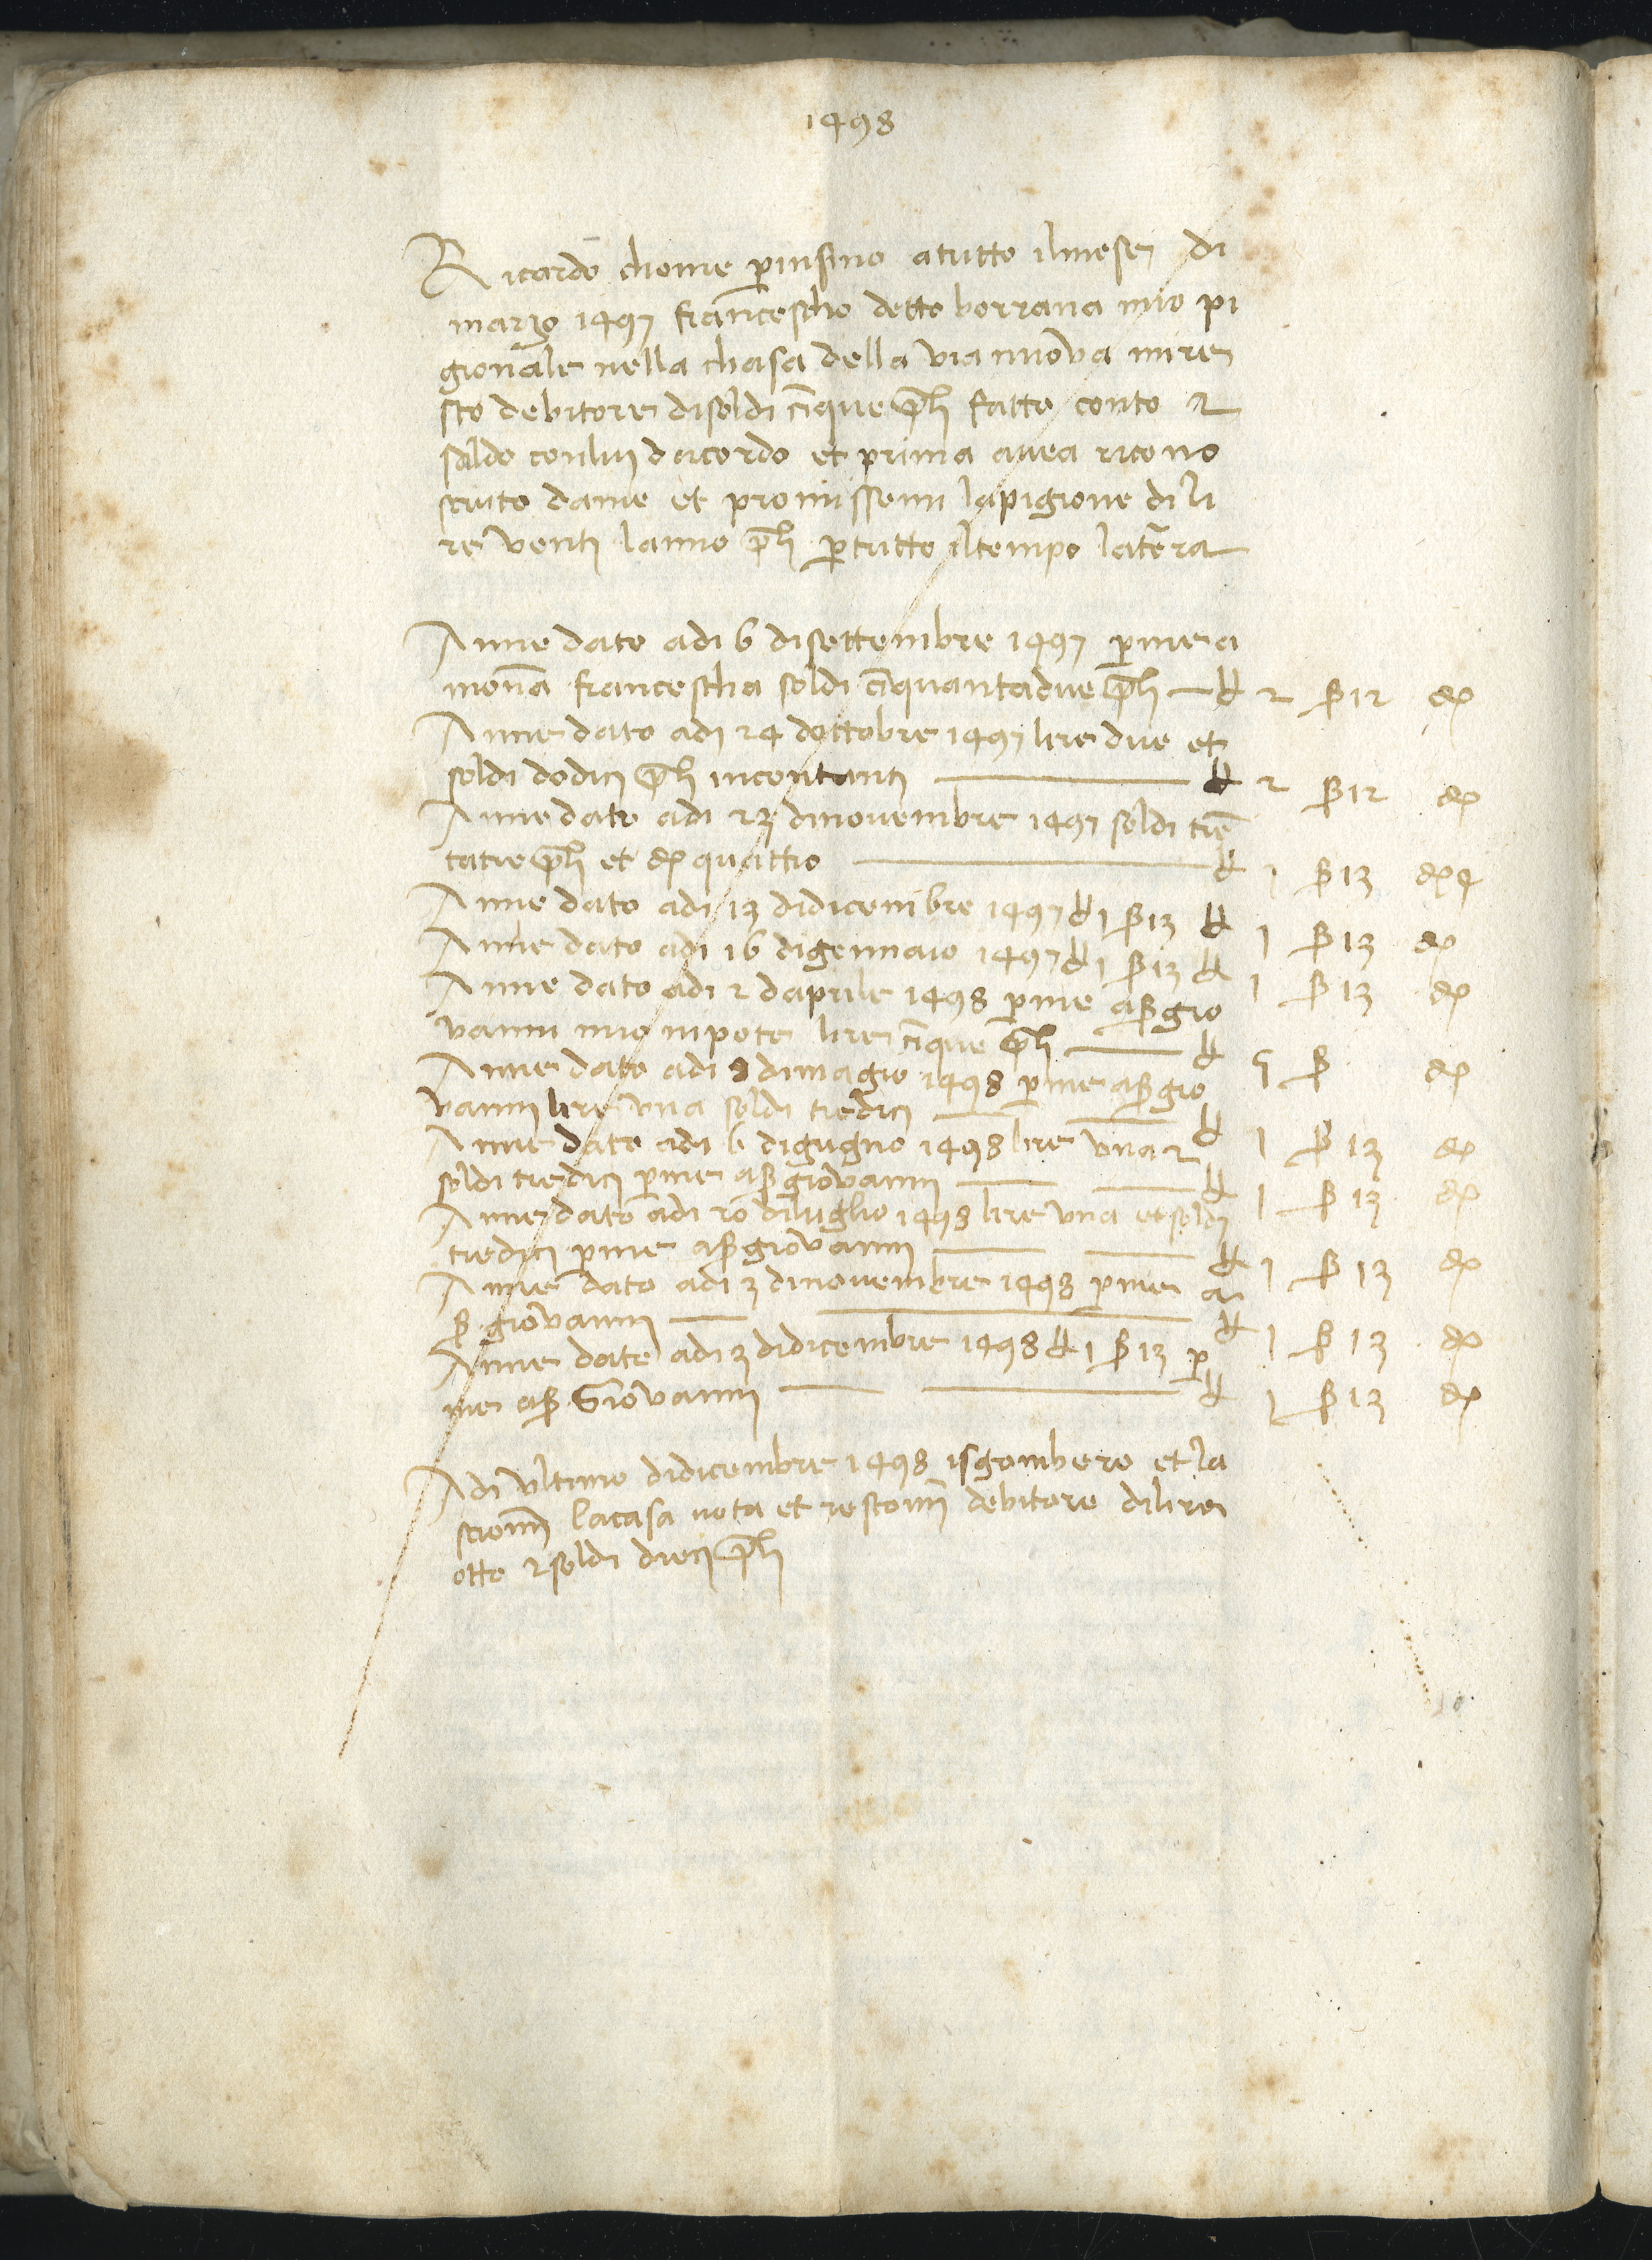 1498
Ricardo chome perinsino atutto ilmese di
marzo 1497 francescho detto borrana mio pi
gionale nella chasa della via nuova mi re
sto debitore disoldi cinque pli fatto conto et
saldo conlui dacordo et prima avea ricono
sciuto dame et promissomi lapigione di li
re venti lanno pli per tutto iltempo latera
Anne dato adi 6 disettembre 1497 per me a
mona francescha soldi cinquantadue pli — £ 2 ß 12 đ
Anne dato adi 24 dottobre 1497 lire due et
soldi dodici pli incontanti — £ 2 ß 12 đ
Anne dato adi 23 dinovembre 1497 soldi tren
tatre pli et đ quattro — £ 1 ß 13 đ 4
Anne dato adi 13 didicembre 1497 £ 1 ß 13 £ 1 ß 13 đ
Anne dato adi 16 digennaio 1497 £ 1 ß 13 £ 1 ß 13 đ
Anne dato adi 2 daprile 1498 per me a ser gio
vanni mio nipote lire cinque pli — £ 5 ß đ
Anne dato adi 9 dimagio 1498 per me a ser gio
vanni lire una soldi tredici — £ 1 ß 13 đ
Anne dato adi 6 digugno 1498 lire una et
soldi tredici per me a ser giovanni — £ 1 ß 13 đ
Anne dato adi 20 diluglio 1498 lire una et soldi
tredici per me a ser giovanni — £ 1 ß 13 đ
Anne dato adi 3 dinovembre 1498 per me a
ser giovanni — £ 1 ß 13 đ
Anne dato adi 3 didicembre 1498 £ 1 ß 13 per
me a ser Giovanni — £ 1 ß 13 đ
Adi ultimo didicembre 1498 isgombero et la
sciomi lacasa vota et restomi debitore dilire
otto et soldi dieci pli